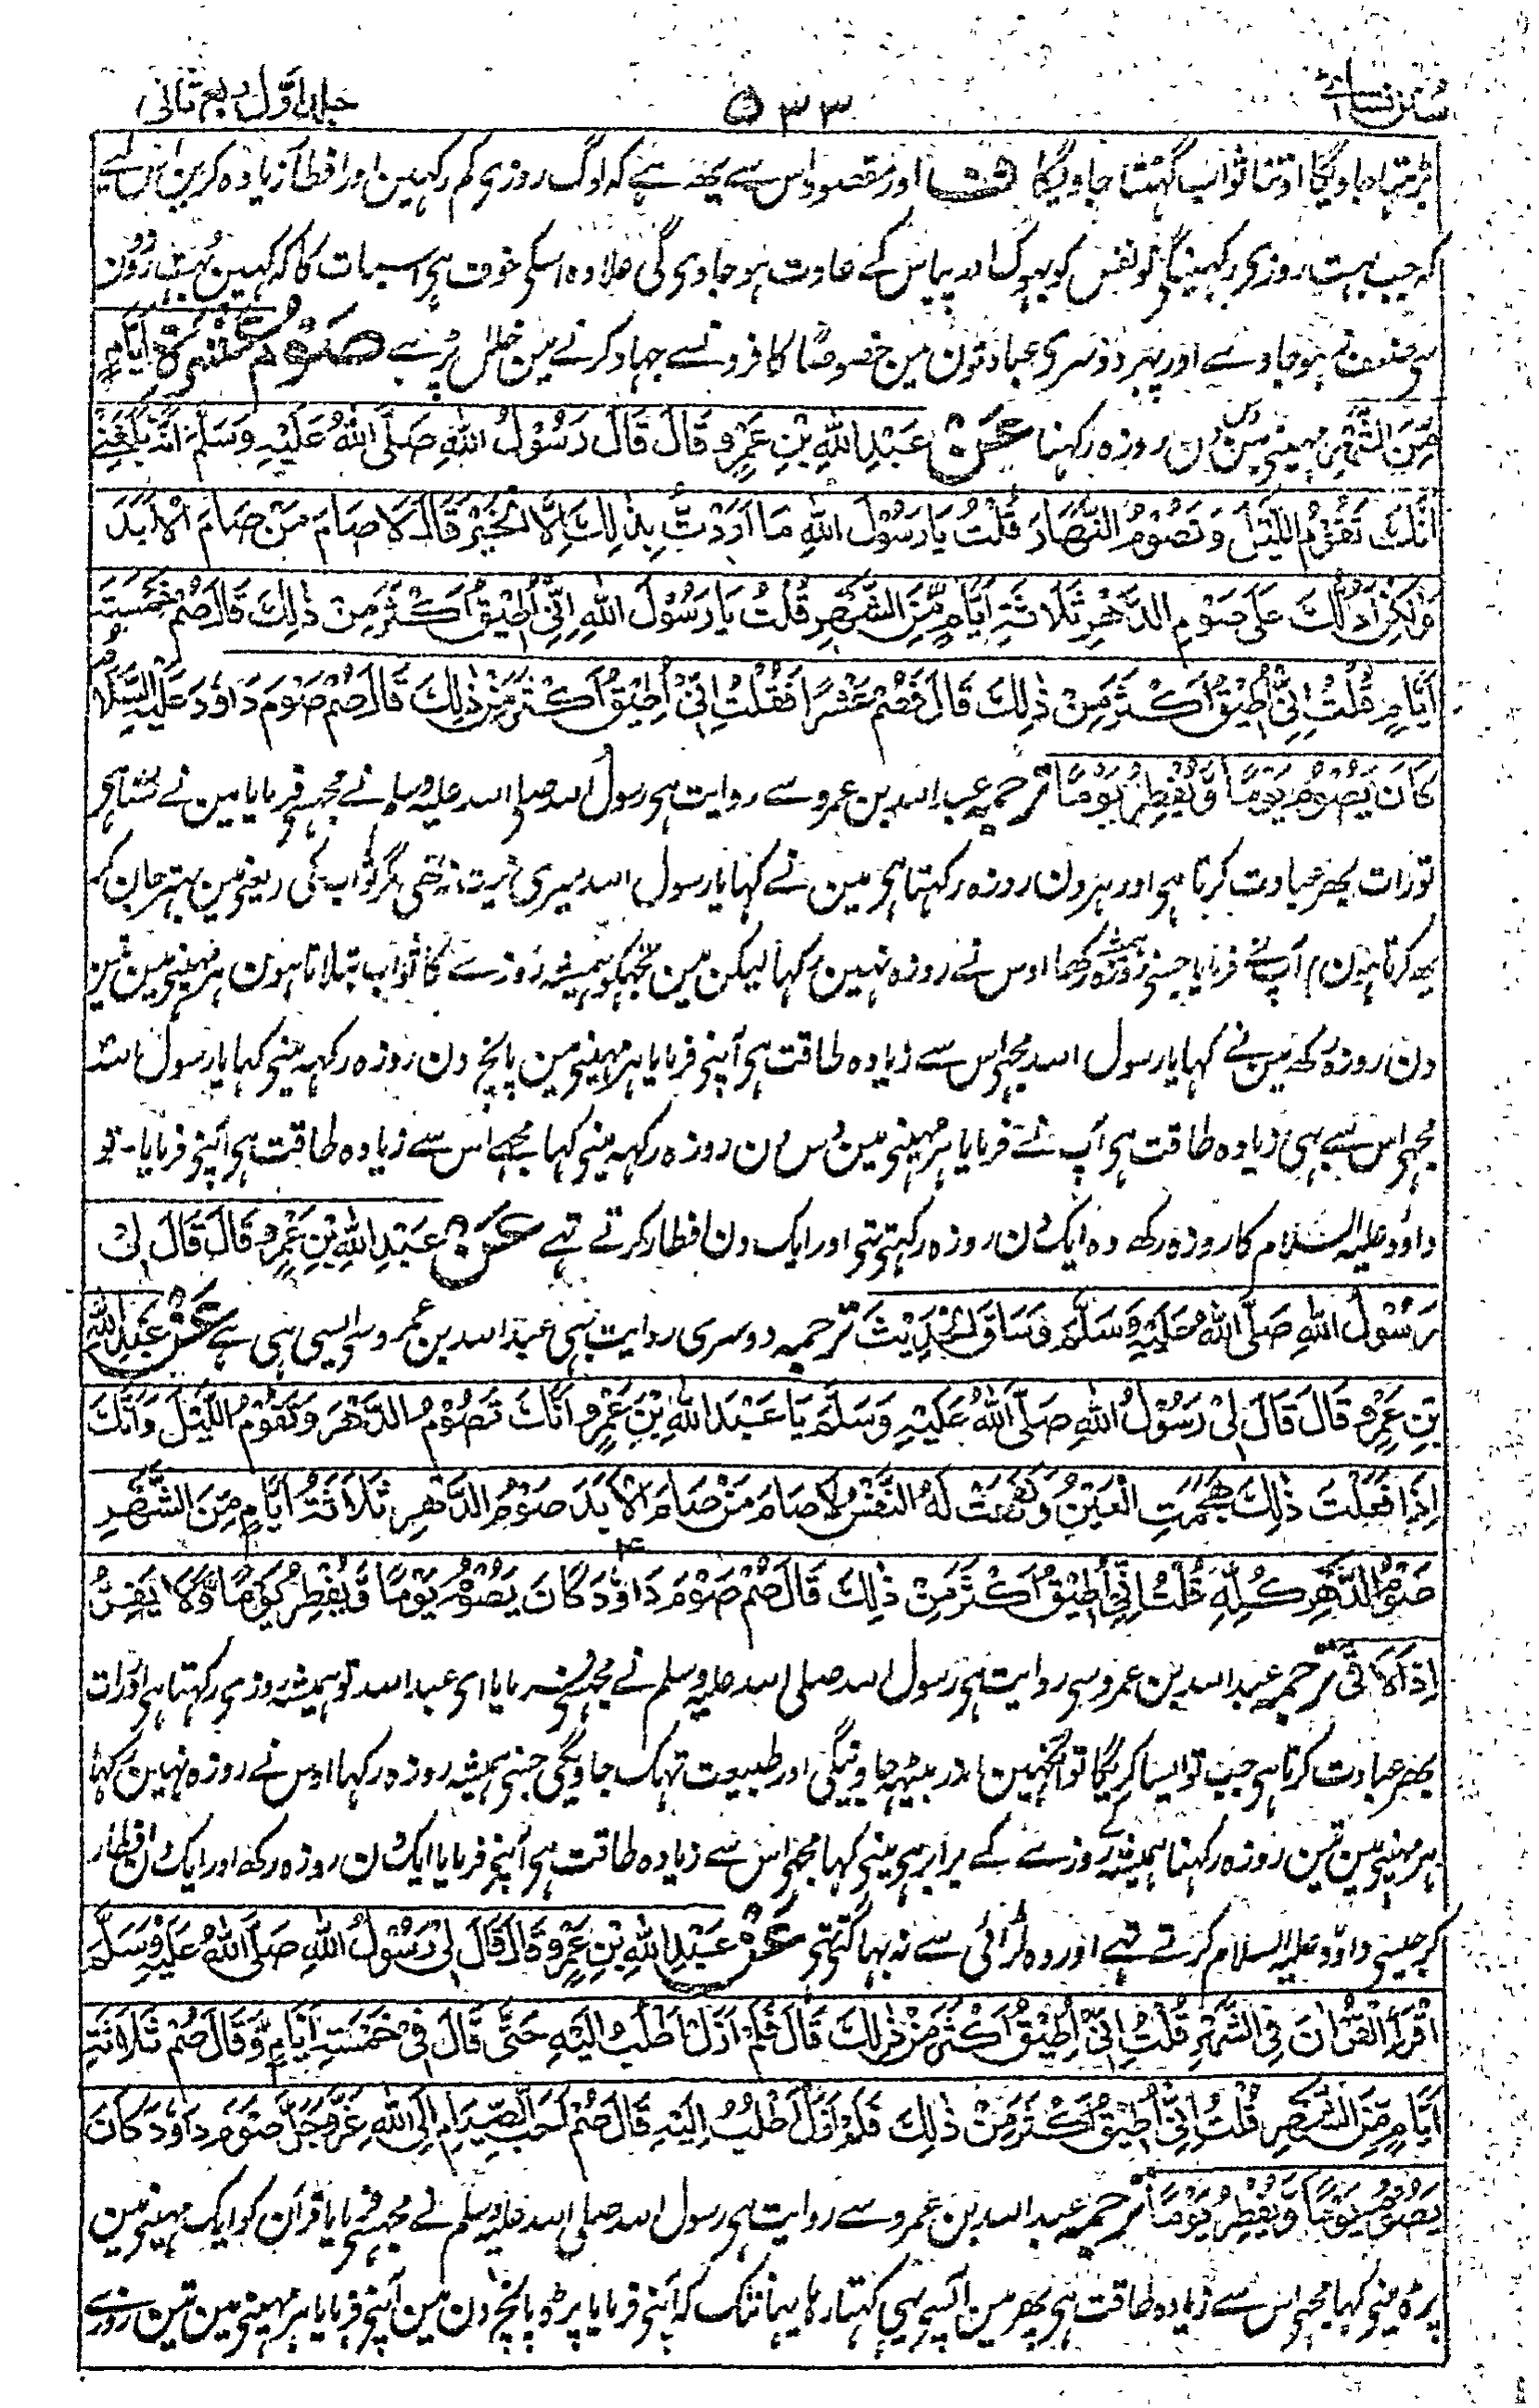 سنن نسائی
۵۳۳
جلد اول ربع ثانی
بڑہتا جاویگا اوتنا ثواب گہٹتا جاویگا ف اور مقصود اس سے یھہ ہے کہ لوگ روزی کم رکہین اور افطار زیادہ کرین اس لیے
کہ جب بہت روزی رکہینگی تو نفس کو بہوک اور پیاس کے عادت ہو جاوی گی علاوہ اسکی خوف ہی اسبات کا کہ کہین بہت روزون
سی ضعف نہو جاوے اور پہر دوسری عبادتون مین خصوصًا کافرونسے جہاد کرنے مین خلل پڑے صَوْمُ عَشَرَةِ أَيَّامٍ
مِّنَ الشَّهْرِ مہینی مین دس دن روزہ رکہنا عَنْ عَبْدِ اللّٰهِ بْنِ عَمْرٍو قَالَ قَالَ رَسُوْلُ اللّٰهِ صَلَّى اللّٰهُ عَلَيْهِ وَسَلَّمَ اِنَّهُ بَلَغَنِيْ
اَنَّكَ تَقُوْمُ اللَّيْلَ وَتَصُوْمُ النَّهَارَ قُلْتُ يَا رَسُوْلَ اللّٰهِ مَا اَرَدْتُّ بِذٰلِكَ اِلَّا الْخَيْرَ قَالَ لَا صَامَ مَنْ صَامَ الْاَبَدَ
وَلٰكِنْ اَدُلُّكَ عَلٰى صَوْمِ الدَّهْرِ ثَلَاثَةِ اَيَّامٍ مِّنَ الشَّهْرِ قُلْتُ يَا رَسُوْلَ اللّٰهِ اِنِّيْ اُطِيْقُ اَكْثَرَ مِنْ ذٰلِكَ قَالَ صُمْ خَمْسَةَ
اَيَّامٍ قُلْتُ اِنِّيْ اُطِيْقُ اَكْثَرَ مِنْ ذٰلِكَ قَالَ فَصُمْ عَشْرًا فَقُلْتُ اِنِّيْ اُطِيْقُ اَكْثَرَ مِنْ ذٰلِكَ قَالَ صُمْ صَوْمَ دَاوٗدَ عَلَيْهِ السَّلَامُ
كَانَ يَصُوْمُ يَوْمًا وَّيُفْطِرُ يَوْمًا ترجمہ عبد اللہ بن عمرو سے روایت ہی رسول اللہ صلی اللہ علیہ وسلم نے مجہسے فرمایا مین نے سنا ہی
تو رات بھر عبادت کرتا ہی اور ہر دن روزہ رکہتا ہی مین نے کہا یا رسول اللہ میری نیت نہ تھی مگر ثواب کی (یعنی مین بہتر جان کر
یہ کرتا ہون) آپ نے فرمایا جسنی ہمیشہ روزہ رکھا اوس نے روزہ نہین رکہا لیکن مین تجہکو ہمیشہ روزے کا ثواب بتلاتا ہون ہر مہینی مین تین
دن روزہ رکھ مین نے کہا یا رسول اللہ مجہی اس سے زیادہ طاقت ہی آپنی فرمایا ہر مہینی مین پانچ دن روزہ رکہہ مینی کہا یا رسول اللہ
مجہی اس سے بہی زیادہ طاقت ہی آپ نے فرمایا ہر مہینی مین دس دن روزہ رکہہ مینی کہا مجہے اس سے زیادہ طاقت ہی آپنی فرمایا۔ تو
داود علیہ السلام کا روزہ رکھ وہ ایک دن روزہ رکہتی تہی اور ایک دن افطار کرتے تہے عَنْ عَبْدِ اللّٰهِ بْنِ عَمْرٍو قَالَ قَالَ لِيْ
رَسُوْلُ اللّٰهِ صَلَّى اللّٰهُ عَلَيْهِ وَسَلَّمَ وَسَاقَ الْحَدِيْثَ ترجمہ دوسری روایت بہی عبد اللہ بن عمرو سے ایسی ہی ہے عَنْ عَبْدِ اللّٰهِ
بْنِ عَمْرٍو قَالَ قَالَ لِيْ رَسُوْلُ اللّٰهِ صَلَّى اللّٰهُ عَلَيْهِ وَسَلَّمَ يَا عَبْدَ اللّٰهِ بْنَ عَمْرٍو اِنَّكَ تَصُوْمُ الدَّهْرَ وَتَقُوْمُ اللَّيْلَ وَاِنَّكَ
اِذَا فَعَلْتَ ذٰلِكَ هَجَمَتِ الْعَيْنُ وَنَفِهَتْ لَهُ النَّفْسُ لَا صَامَ مَنْ صَامَ الْاَبَدَ صَوْمُ الدَّهْرِ ثَلَاثَةُ اَيَّامٍ مِّنَ الشَّهْرِ
صَوْمُ الدَّهْرِ كُلِّهٖ قُلْتُ اِنِّيْ اُطِيْقُ اَكْثَرَ مِنْ ذٰلِكَ قَالَ صُمْ صَوْمَ دَاوٗدَ كَانَ يَصُوْمُ يَوْمًا وَّيُفْطِرُ يَوْمًا وَّلَا يَفِرُّ
اِذَا لَاقٰى ترجمہ عبد اللہ بن عمرو سی روایت ہی رسول اللہ صلی اللہ علیہ وسلم نے مجہسے فرمایا ای عبد اللہ تو ہمیشہ روزی رکہتا ہی اور رات
بھر عبادت کرتا ہی جب تو ایسا کریگا تو آنکہین اندر بیٹہہ جاوینگی اور طبیعت تہک جاویگی جسنی ہمیشہ روزہ رکہا اوس نے روزہ نہین رکہا
ہر مہینی مین تین روزہ رکہنا ہمیشہ کے روزے کے برابر ہی مینی کہا مجہی اس سے زیادہ طاقت ہی آپنی فرمایا ایک دن روزہ رکھ اور ایک دن افطار
کر جیسے داوٗد علیہ السلام کرتے تہے اور وہ لڑائی سے نہ بہاگتی تہی عَنْ عَبْدِ اللّٰهِ بْنِ عَمْرٍو قَالَ قَالَ لِيْ رَسُوْلُ اللّٰهِ صَلَّى اللّٰهُ عَلَيْهِ وَسَلَّمَ
اقْرَأِ الْقُرْاٰنَ فِي الشَّهْرِ قُلْتُ اِنِّيْ اُطِيْقُ اَكْثَرَ مِنْ ذٰلِكَ قَالَ فَلَمْ اَزَلْ اَطْلُبُ اِلَيْهِ حَتّٰى قَالَ فِيْ خَمْسَةِ اَيَّامٍ وَّقَالَ صُمْ ثَلَاثَةَ
اَيَّامٍ مِّنَ الشَّهْرِ قُلْتُ اِنِّيْ اُطِيْقُ اَكْثَرَ مِنْ ذٰلِكَ فَلَمْ اَزَلْ اَطْلُبُ اِلَيْهِ قَالَ صُمْ اَحَبَّ الصِّيَامِ اِلَى اللّٰهِ عَزَّ وَجَلَّ صَوْمَ دَاوٗدَ كَانَ
يَصُوْمُ يَوْمًا وَّيُفْطِرُ يَوْمًا ترجمہ عبد اللہ بن عمرو سے روایت ہی رسول اللہ صلی اللہ علیہ وسلم نے مجہسے فرمایا قرآن کو ایک مہینی مین
پڑہ مینی کہا مجہی اس سے زیادہ طاقت ہی پھر مین آپسے یہی کہتا رہا یہانتک کہ آپنی فرمایا پڑہ پانچ دن مین آپنی فرمایا ہر مہینی مین تین روزے